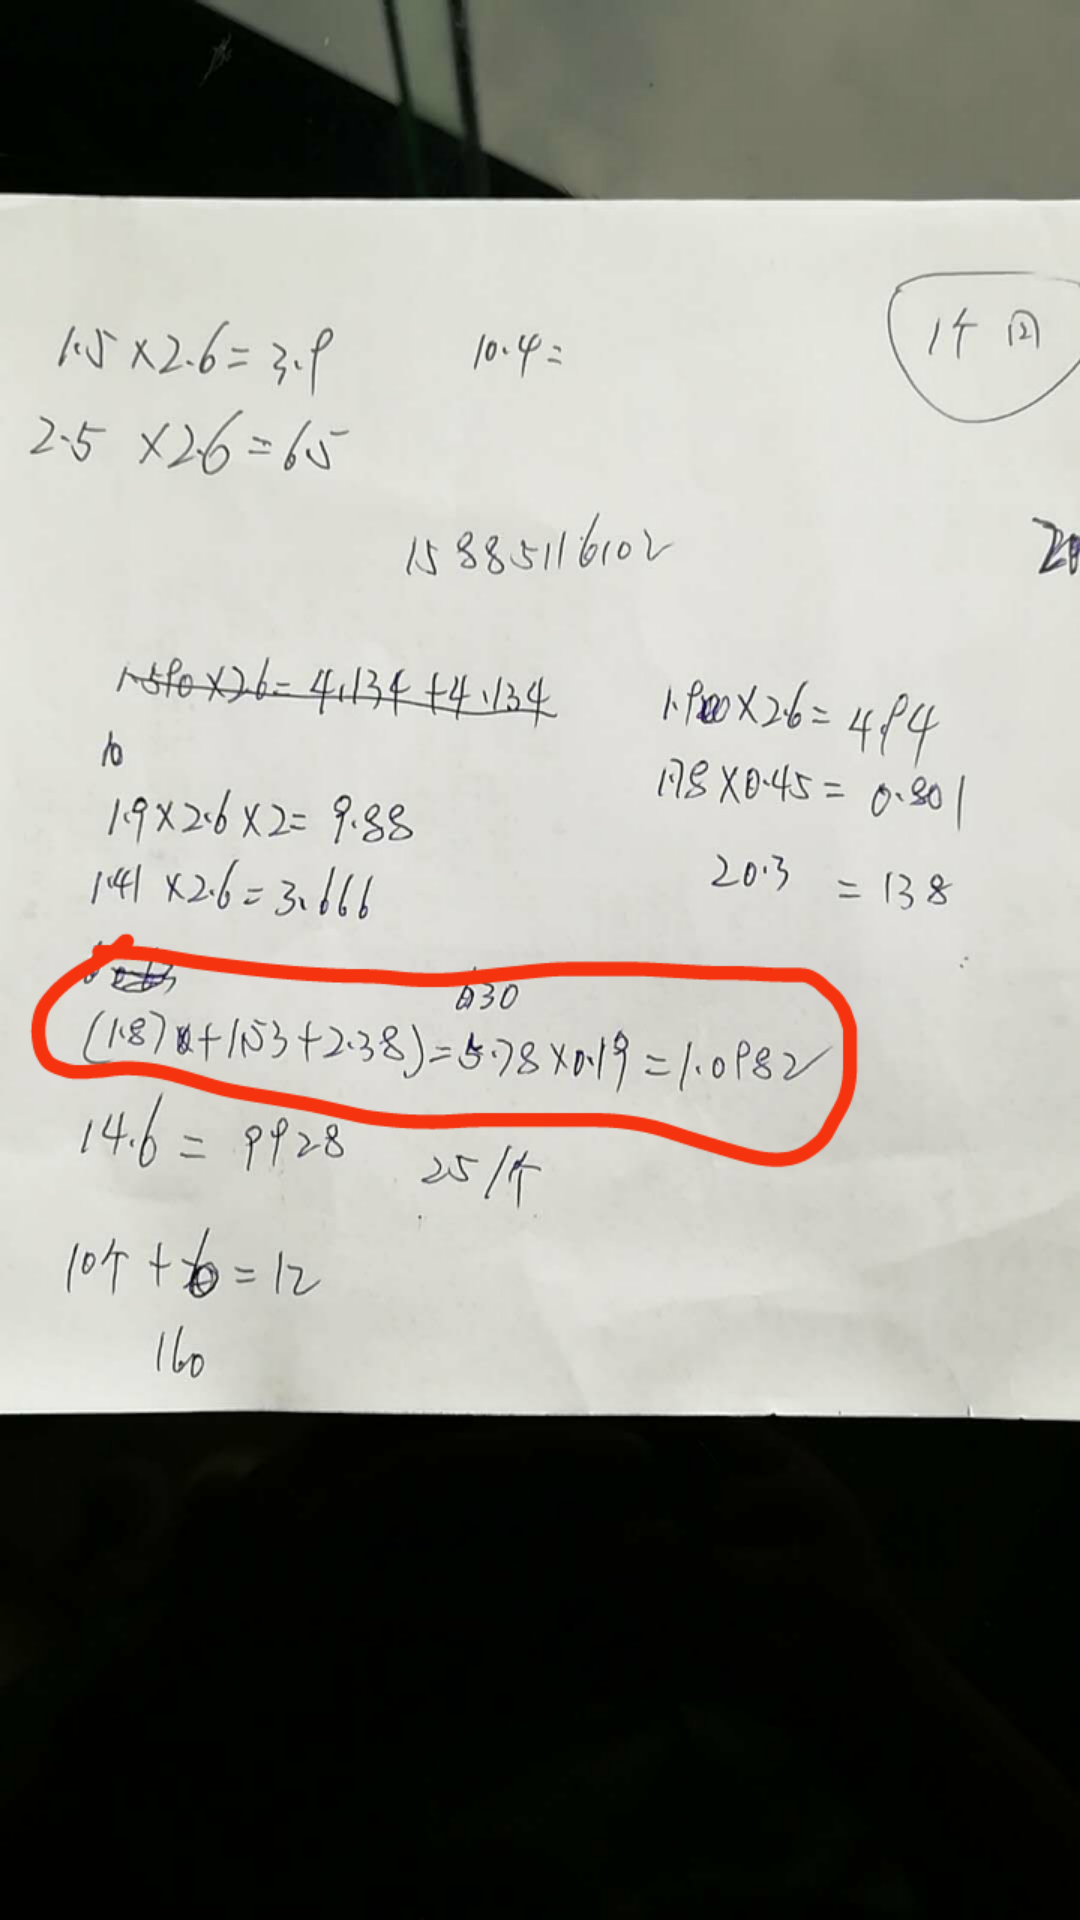 1个 囙
1.5×2.6=3.9
10.4=
2.5 ×2.6=65
15885116102
20
1.590×2.6=4.134+4.134
1.900×2.6=4.94
10
1.78×0.45=0.801
1.9×2.6×2=9.88
20.3 =138
1.41×2.6=3.666
030
(1.87+1.53+2.38)=5.78×0.19=1.0982
14.6=9928
25/个
10个+6=12
160